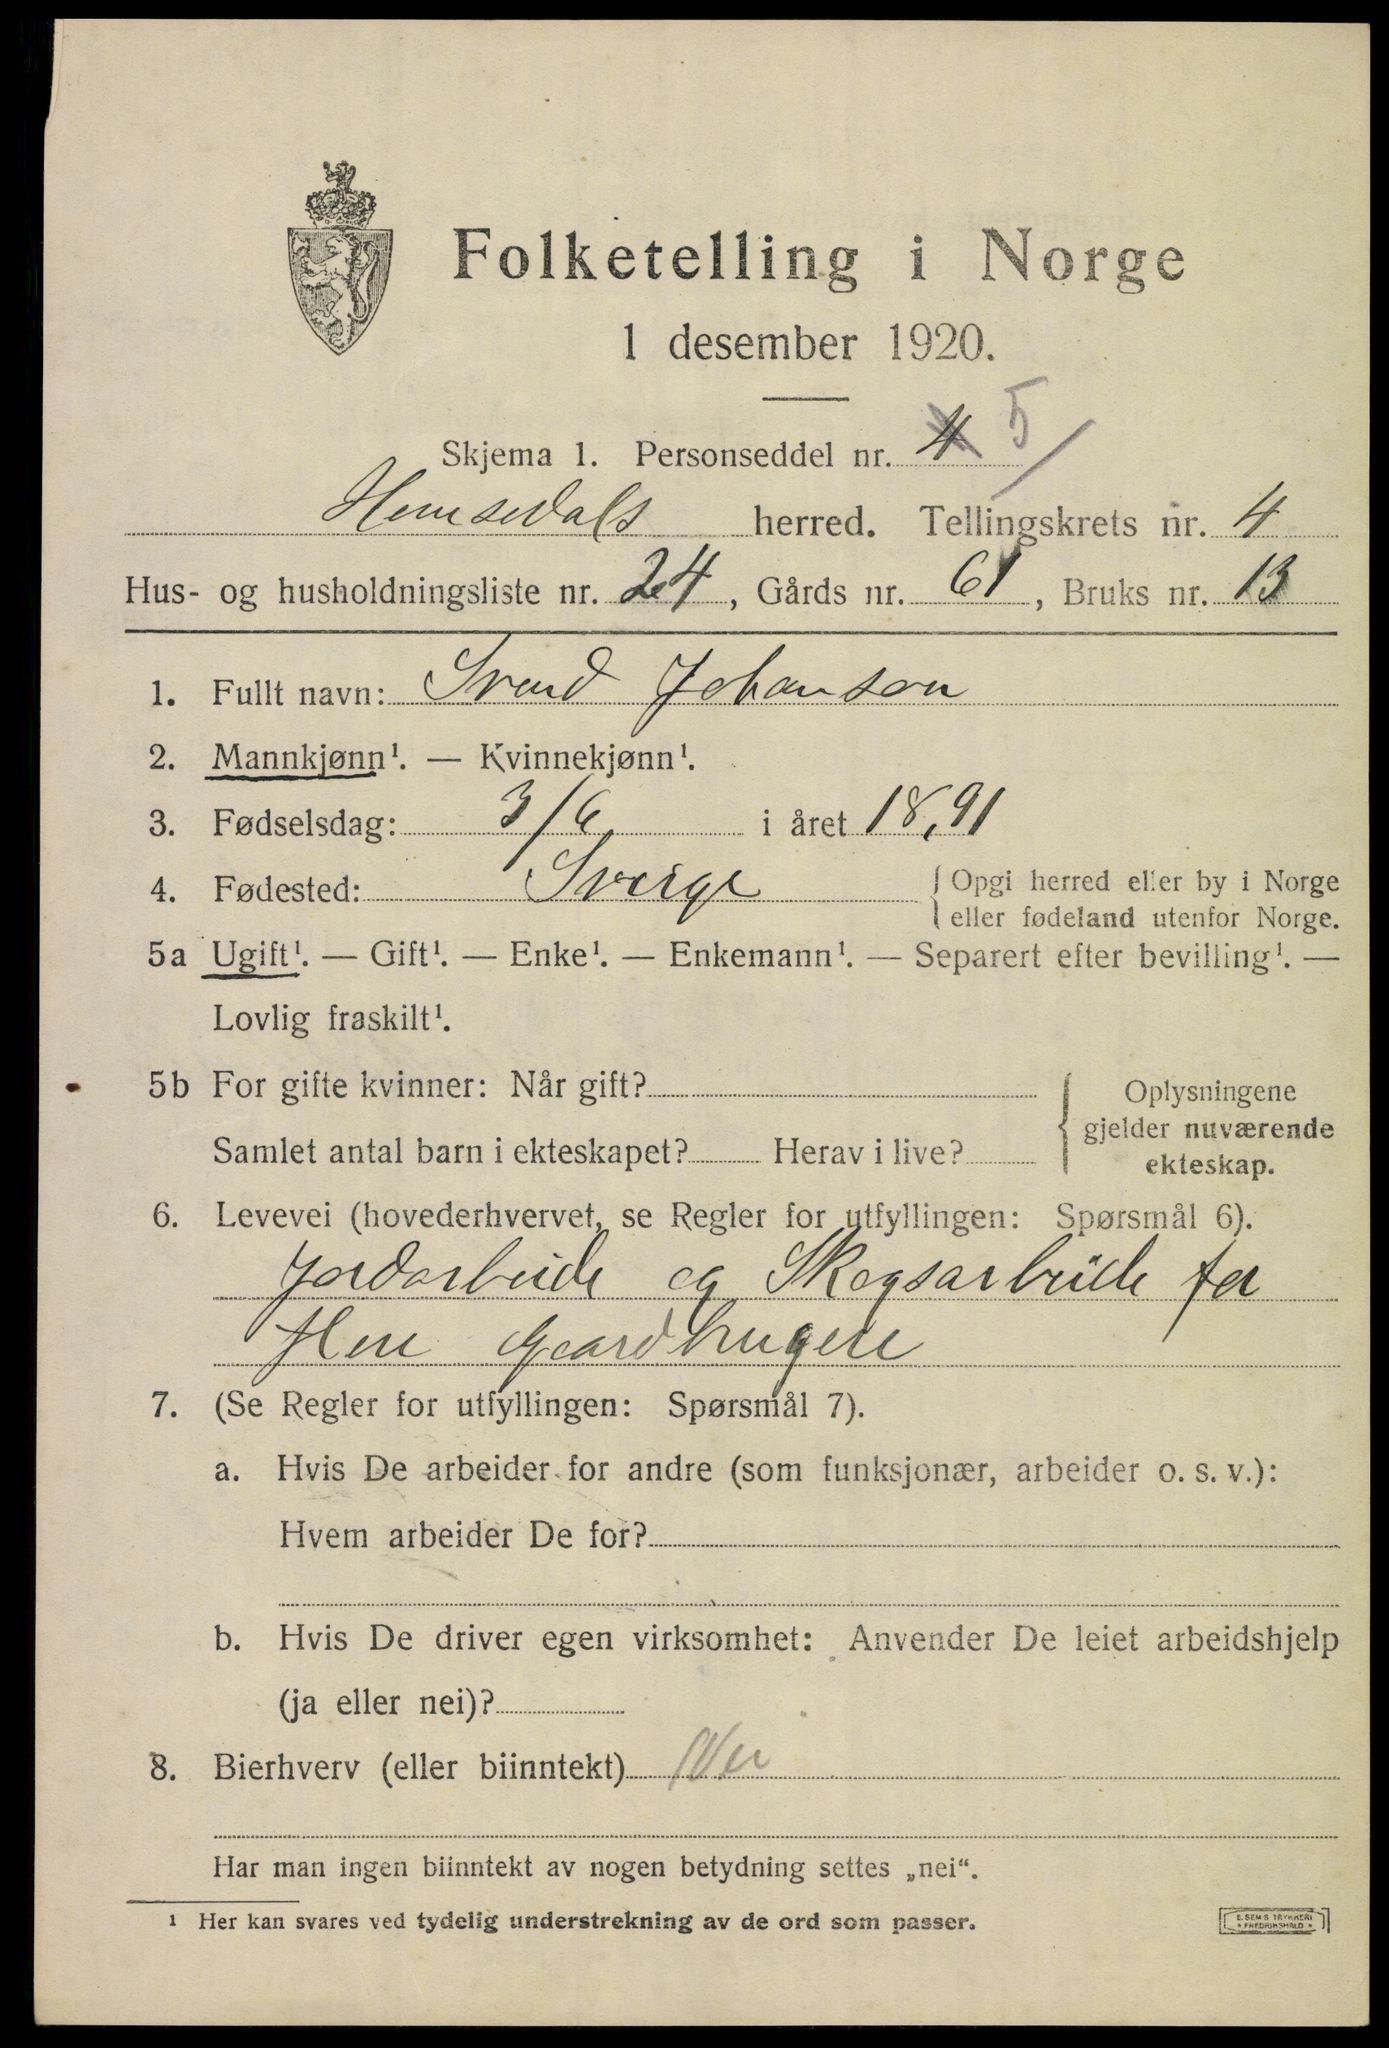 Folketelling i Norge
1 desember 1920.
Skjema 1. Personseddel nr. 4 5/
Hemsedals herred. Tellingskrets nr. 4
Hus- og husholdningsliste nr. 24, Gårds nr. 61, Bruks nr. 13
1. Fullt navn: Svend Johanson
2. Mannkjønn¹. — Kvinnekjønn¹.
3. Fødselsdag: 3/6 i året 18,91
4. Fødested: Sverge { Opgi herred eller by i Norge
eller fødeland utenfor Norge.
5a Ugift¹. — Gift¹. — Enke¹. — Enkemann¹. — Separert efter bevilling¹. —
Lovlig fraskilt¹.
5b For gifte kvinner: Når gift?
Samlet antal barn i ekteskapet? Herav i live?
{ Oplysningene
gjelder nuværende
ekteskap.
6. Levevei (hovederhvervet, se Regler for utfyllingen: Spørsmål 6).
Jordarbeide og Skogsarbeide for
Gaardbrugere
7. (Se Regler for utfyllingen: Spørsmål 7).
a. Hvis De arbeider for andre (som funksjonær, arbeider o. s. v.):
Hvem arbeider De for?
b. Hvis De driver egen virksomhet: Anvender De leiet arbeidshjelp
(ja eller nei)?
8. Bierhverv (eller biinntekt) Nei
Har man ingen biinntekt av nogen betydning settes „nei“.
¹ Her kan svares ved tydelig understrekning av de ord som passer.
E. SEM'S TRYKKERI
* FREDRIKSHALD *